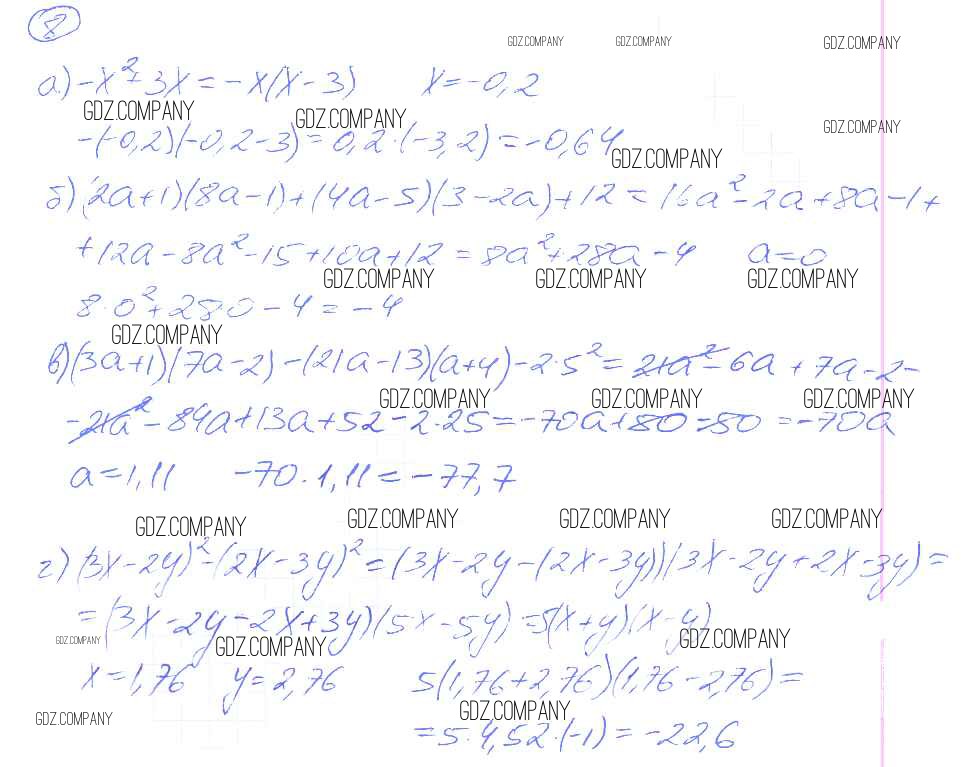 8
GDZ.COMPANY GDZ.COMPANY GDZ.COMPANY
а) -x²+3x = -x(x-3)   x=-0,2
GDZ.COMPANY GDZ.COMPANY GDZ.COMPANY
-(-0,2)(-0,2-3)=0,2·(-3,2)=-0,64
GDZ.COMPANY
б) (2a+1)(8a-1)+(4a-5)(3-2a)+12=16a²-2a+8a-1+
+12a-8a²-15+10a+12=8a²+28a-4   a=0
GDZ.COMPANY GDZ.COMPANY GDZ.COMPANY
8·0²+28·0-4=-4
GDZ.COMPANY
в) (3a+1)(7a-2)-(21a-13)(a+4)-2·5²=21a²-6a+7a-2-
GDZ.COMPANY GDZ.COMPANY GDZ.COMPANY
-21a²-84a+13a+52-2·25=-70a+50-50=-70a
a=1,11   -70·1,11=-77,7
GDZ.COMPANY GDZ.COMPANY GDZ.COMPANY GDZ.COMPANY
г) (3x-2y)²-(2x-3y)²=(3x-2y-(2x-3y))(3x-2y+2x-3y)=
=(3x-2y-2x+3y)(5x-5y)=5(x+y)(x-y)
GDZ.COMPANY GDZ.COMPANY GDZ.COMPANY
x=1,76   y=2,76   5(1,76+2,76)(1,76-2,76)=
GDZ.COMPANY GDZ.COMPANY
=5·4,52·(-1)=-22,6